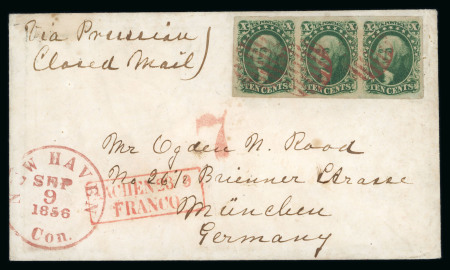 Via Prussian
Closed Mail
TEN CENTS TEN CENTS TEN CENTS
7
Mr Ogden N. Rood
No. 26/2 Brienner Strasse
München
Germany
NEW HAVEN
SEP
9
1856
Con.
AACHEN 23 9
FRANCO